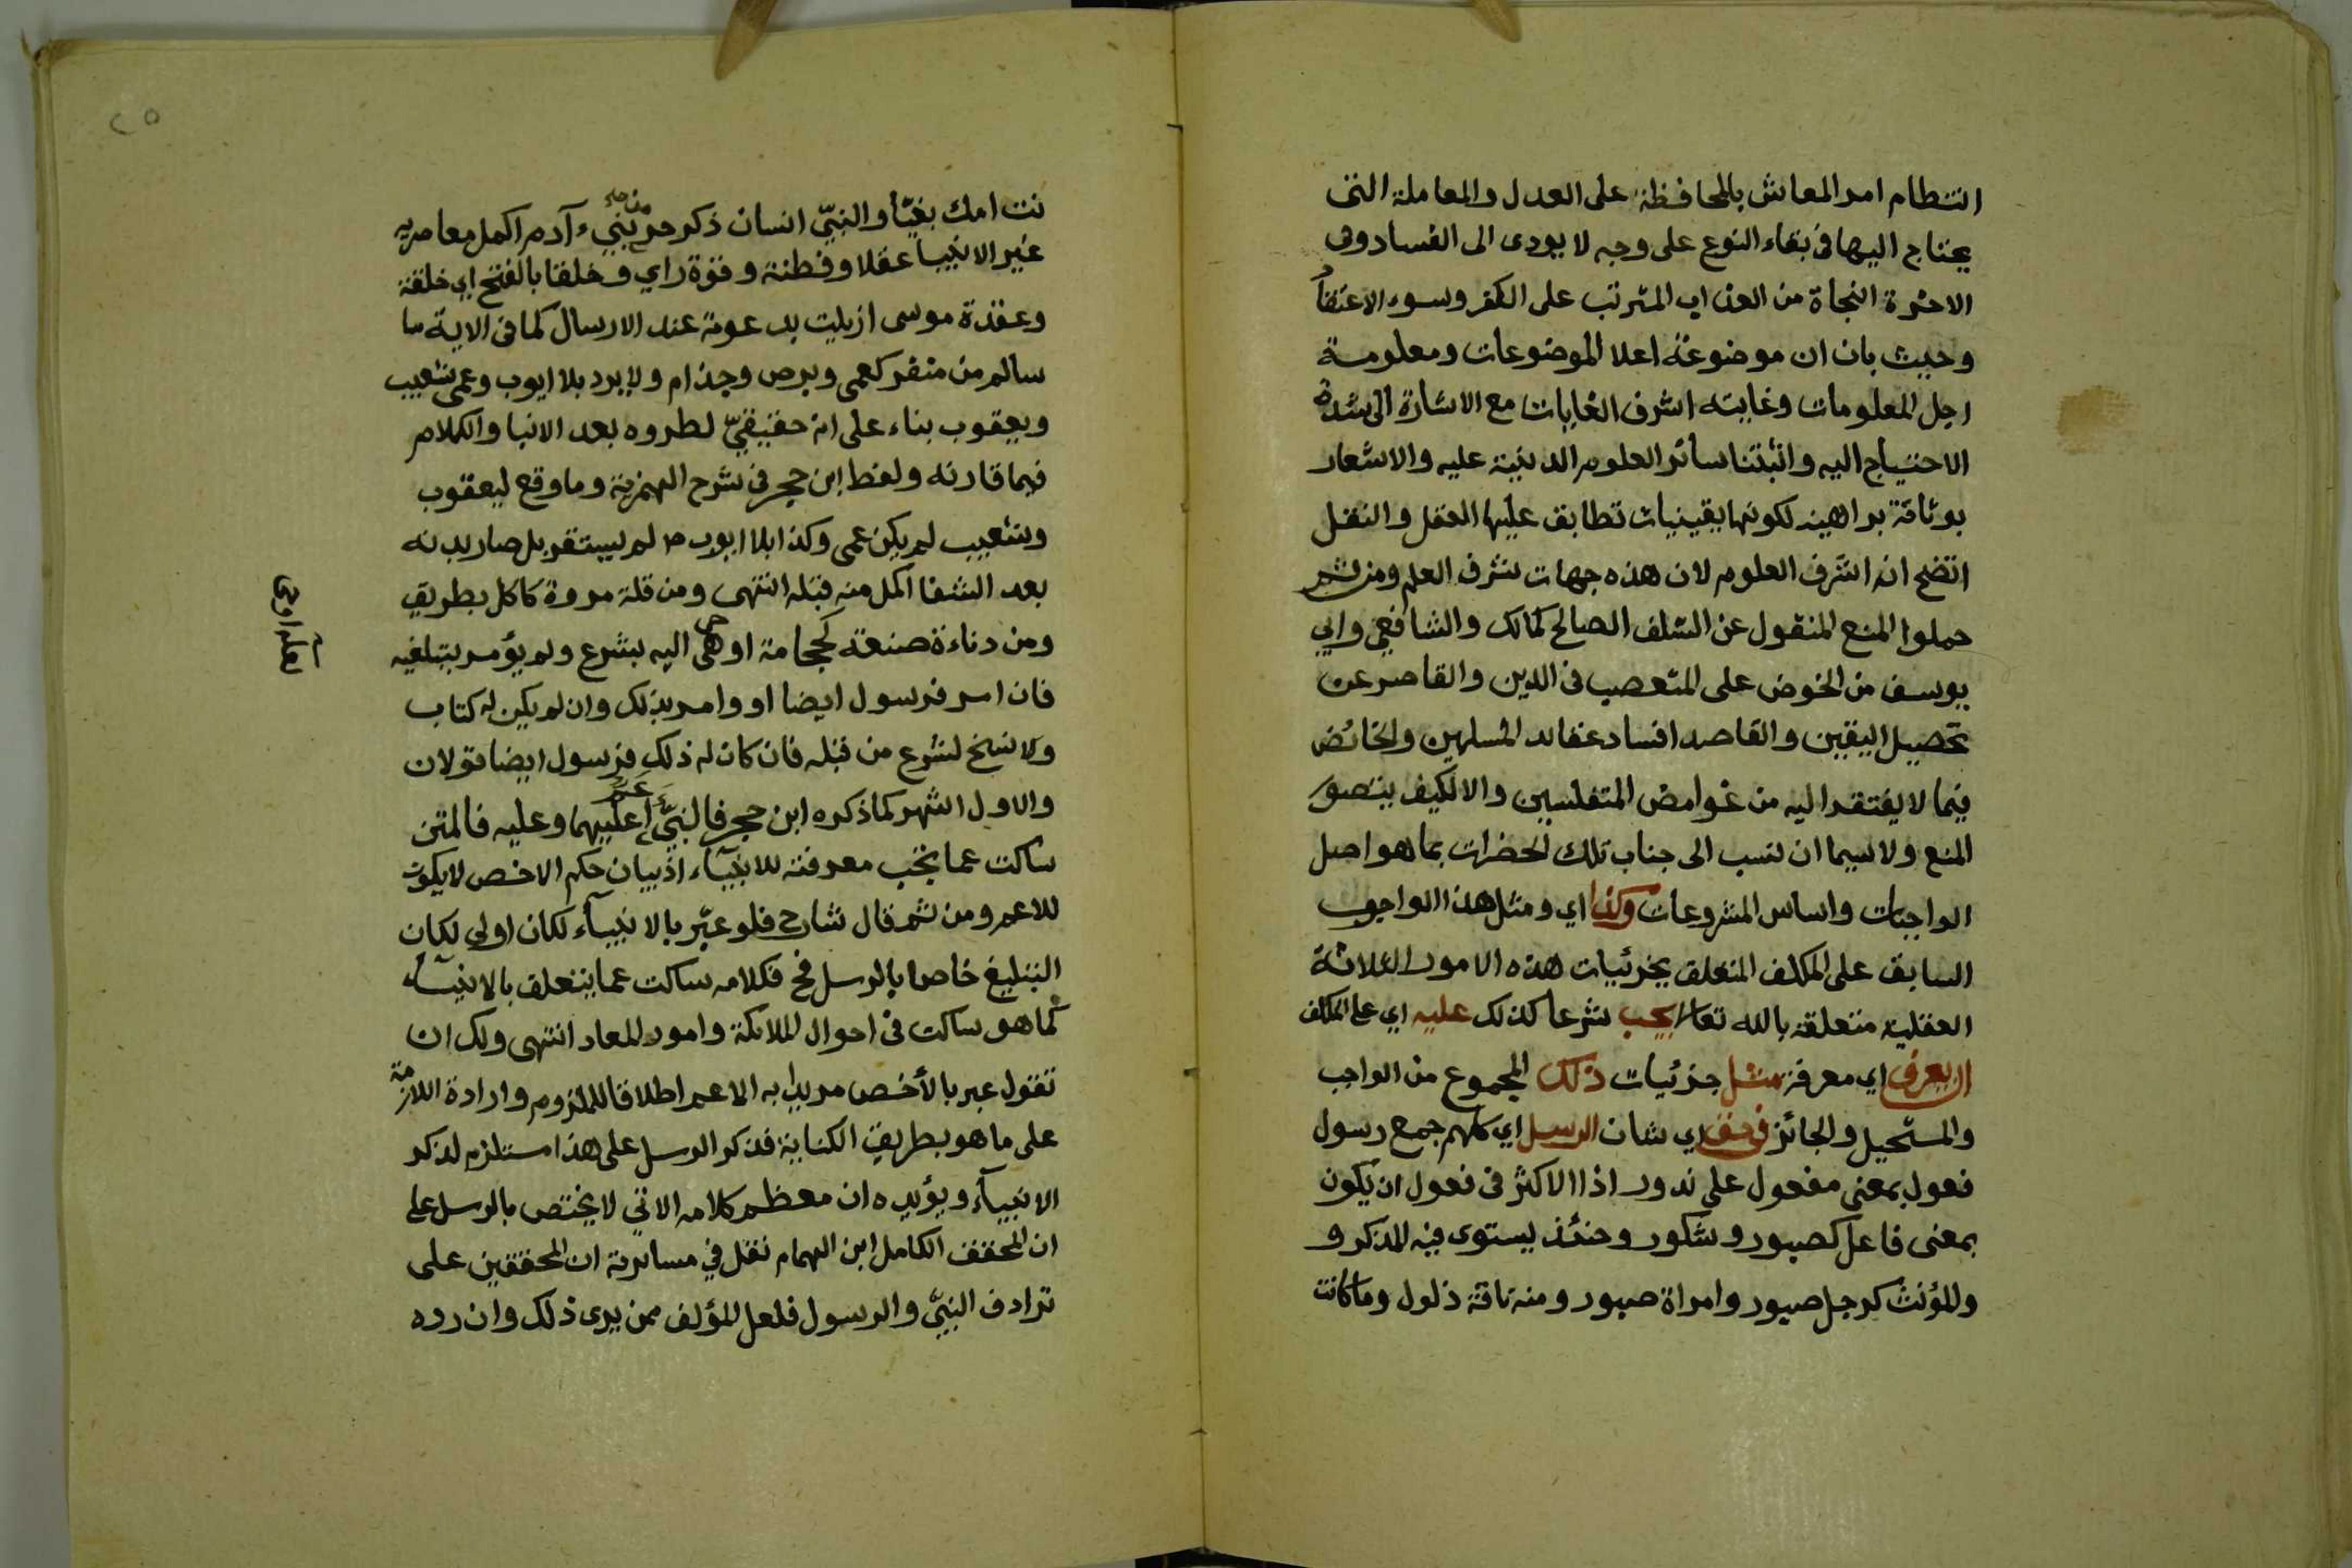 انتظام امر المعاش بالمحافظة على العدل والمعاملة التى
يحتاج اليها فى بقاء النوع على وجه لا يودى الى الفساد وفى
الاخرة النجاة من العذاب المترتب على الكفر وسوء الاعتقاد
وحيث بان ان موضوعته اعلا الموضوعات ومعلومه
اجل المعلومات وغايته اشرف الغايات مع الاشارة الى شدة
الاحتياج اليه وانبتنا سائر العلوم الدينية عليه والاشعار
بوثاقة براهينه لكونها يقينيات تطابق عليها العقل والنقل
اتضح انه اشرف العلوم لان هذه جهات شرف العلم ومن ثم
حملوا المنع المنقول عن السلف الصالح كمالك والشافعي وابي
يوسف من الخوض على المتعصب فى الدين والقاصر عن
تحصيل اليقين والقاصد افساد عقائد المسلمين والخائض
فيما لا يفتقر اليه من غوامض المتفلسين والا لكيف يتصور
المنع ولا سيما ان نسب الى جناب تلك الحضرات بما هو اصل
الواجبات واساس المشروعات وكذا اي ومثل هذا الواجوب
السابق على المكلف المتعلق بجزئيات هذه الامور الثلاثة
العقلية متعلقة بالله تعالى يجب شرعا كذلك عليه اي على المكلف
ان يعرف اي معرفة مثل جزئيات ذلك المجموع من الواجب
والمستحيل والجائز فى حق اي شان الرسل اي كلهم جمع رسول
فعول بمعنى مفعول على ندور اذا الاكثر فى فعول ان يكون
بمعنى فاعل كصبور وشكور وحنئذ يستوى فيه المذكر و
والمؤنث كرجل صبور وامراة صبور ومنه ناقة ذلول وما كانت
٢٥
نت امك بغيا والنبيّ انسان ذكر حر من بني آدم اكمل معاصريه
غير الانبيا عقلا وفطنة وقوة راي وخلقا بالفتح اي خلقة
وعقدة موسى ازيلت بدعوته عند الارسال كما فى الاية ما
سالم من منفر كعمى وبرص وجذام ولا يرد بلا ايوب وعمى شعيب
ويعقوب بناء على انه حقيقيّ لطروه بعد الانبا والكلام
فيما قارنه ولفظ ابن حجر فى شرح الهمزية وما وقع ليعقوب
وشعيب لم يكن عمى وكذا بلا ايوب لم يستقر بل صار بدنه
بعد الشفا اكمل منه قبله انتهى ومن قلة مروة كاكل بطريق
ومن دناءة صنعة كحجامة اوحى اليه بشرع ولم يؤمر بتبلغيه
فان امر فرسول ايضا او وامر بذلك وان لم يكن له كتاب
ولا نسخ لشرع من قبله فان كان له ذلك فرسول ايضا قولان
والاول اشهر كما ذكره ابن حجر فالنبيّ اعم عليهما وعليه فالمتن
ساكت عما يجب معرفته للانبياء اذ بيان حكم الاخص لا يكون
للاعم ومن ثم قال شارح فلو عبّر بالانبياء لكان اولى لكان
التبليغ خاص بالرسل فح فكلامه ساكت عما يتعلق بالانبياء
كما هو ساكت فى احوال الملائكة وامور المعاد انتهى ولك ان
تقول عبر بالأخص مريدا به الاعم اطلاقا للملزوم وارادة اللازمة
على ما هو بطريق الكناية فذكر الرسل على هذا مستلزم لذكر
الانبياء ويؤيده ان معظم كلامه الاتي لا يختص بالرسل على
ان المحقق الكامل ابن الهمام نقل في مسايرته ان المحققين على
ترادف النبيّ والرسول فلعل المؤلف ممن يرى ذلك وان رده